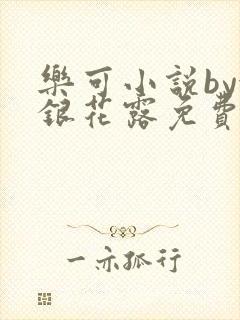 樂可小說by
銀花露免費
一亦孤行